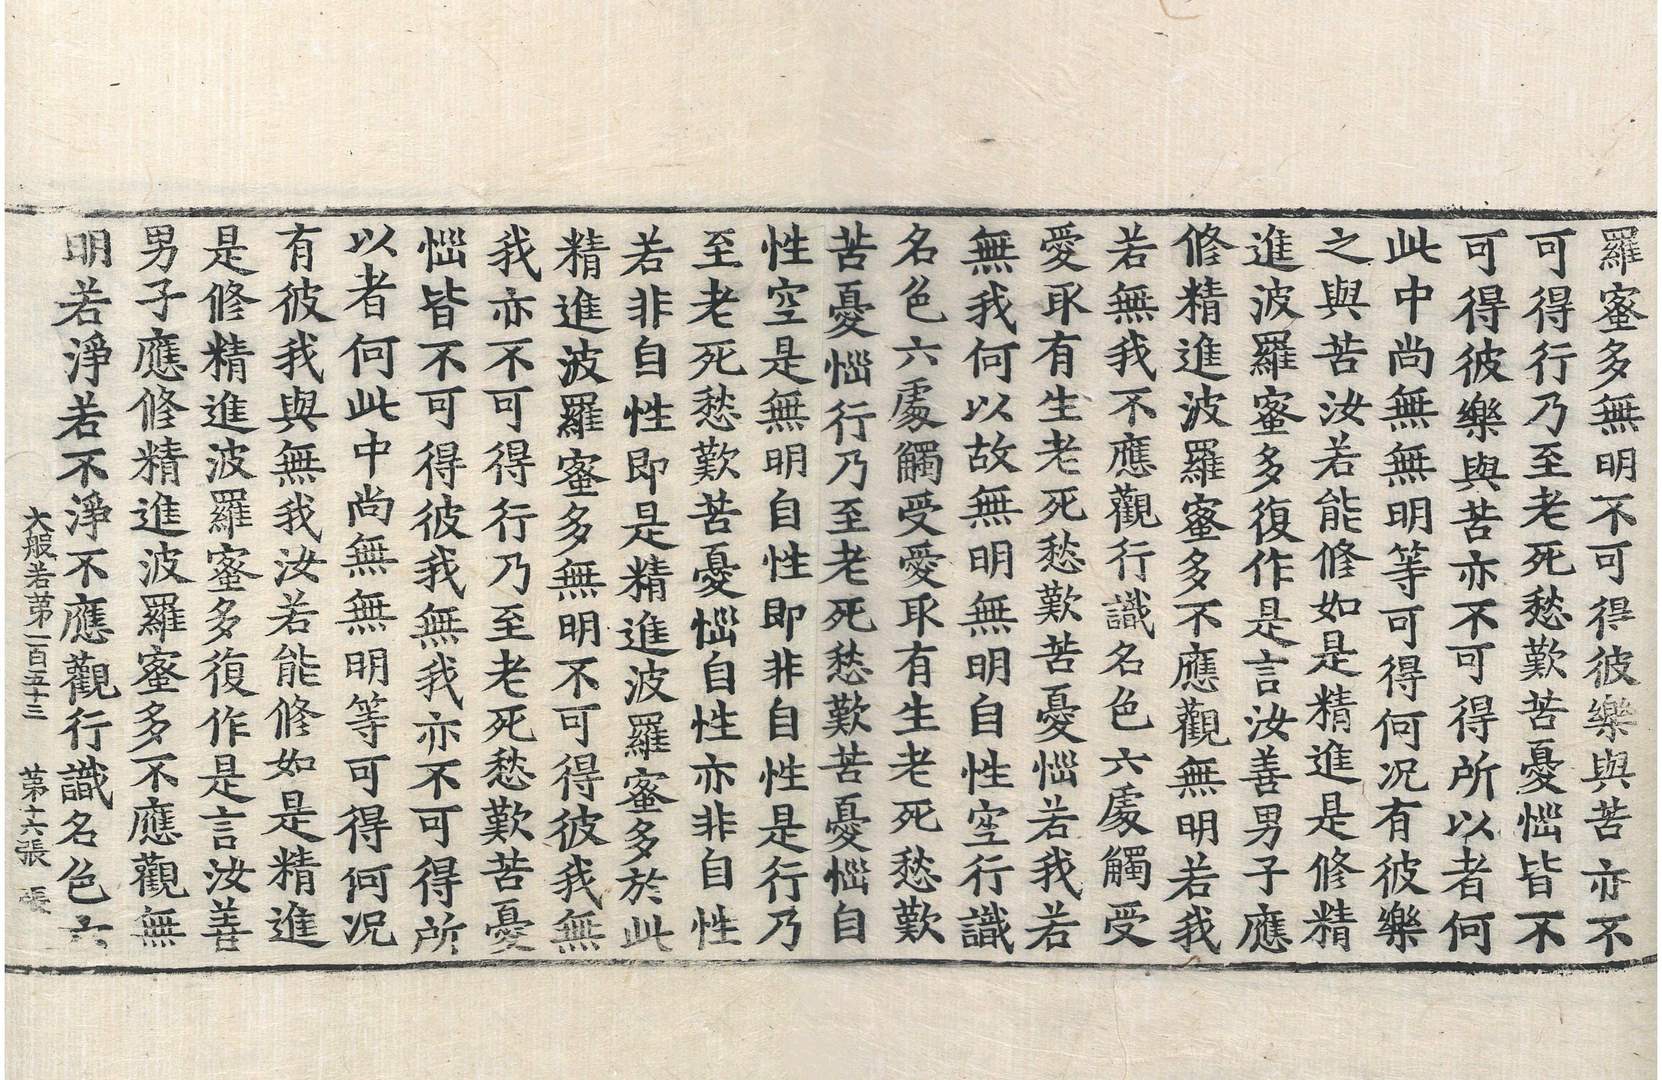 羅蜜多無明不可得彼樂與苦亦不
可得行乃至老死愁歎苦憂惱皆不
可得彼樂與苦亦不可得所以者何
此中尚無無明等可得何况有彼樂
之與苦汝若能修如是精進是修精
進波羅蜜多復作是言汝善男子應
修精進波羅蜜多不應觀無明若我
若無我不應觀行識名色六處觸受
愛取有生老死愁歎苦憂惱若我若
無我何以故無明無明自性空行識
名色六處觸受愛取有生老死愁歎
苦憂惱行乃至老死愁歎苦憂惱自
性空是無明自性即非自性是行乃
至老死愁歎苦憂惱自性亦非自性
若非自性即是精進波羅蜜多於此
精進波羅蜜多無明不可得彼我無
我亦不可得行乃至老死愁歎苦憂
惱皆不可得彼我無我亦不可得所
以者何此中尚無無明等可得何况
有彼我與無我汝若能修如是精進
是修精進波羅蜜多復作是言汝善
男子應修精進波羅蜜多不應觀無
明若淨若不淨不應觀行識名色六
大般若第一百五十三 第十六張